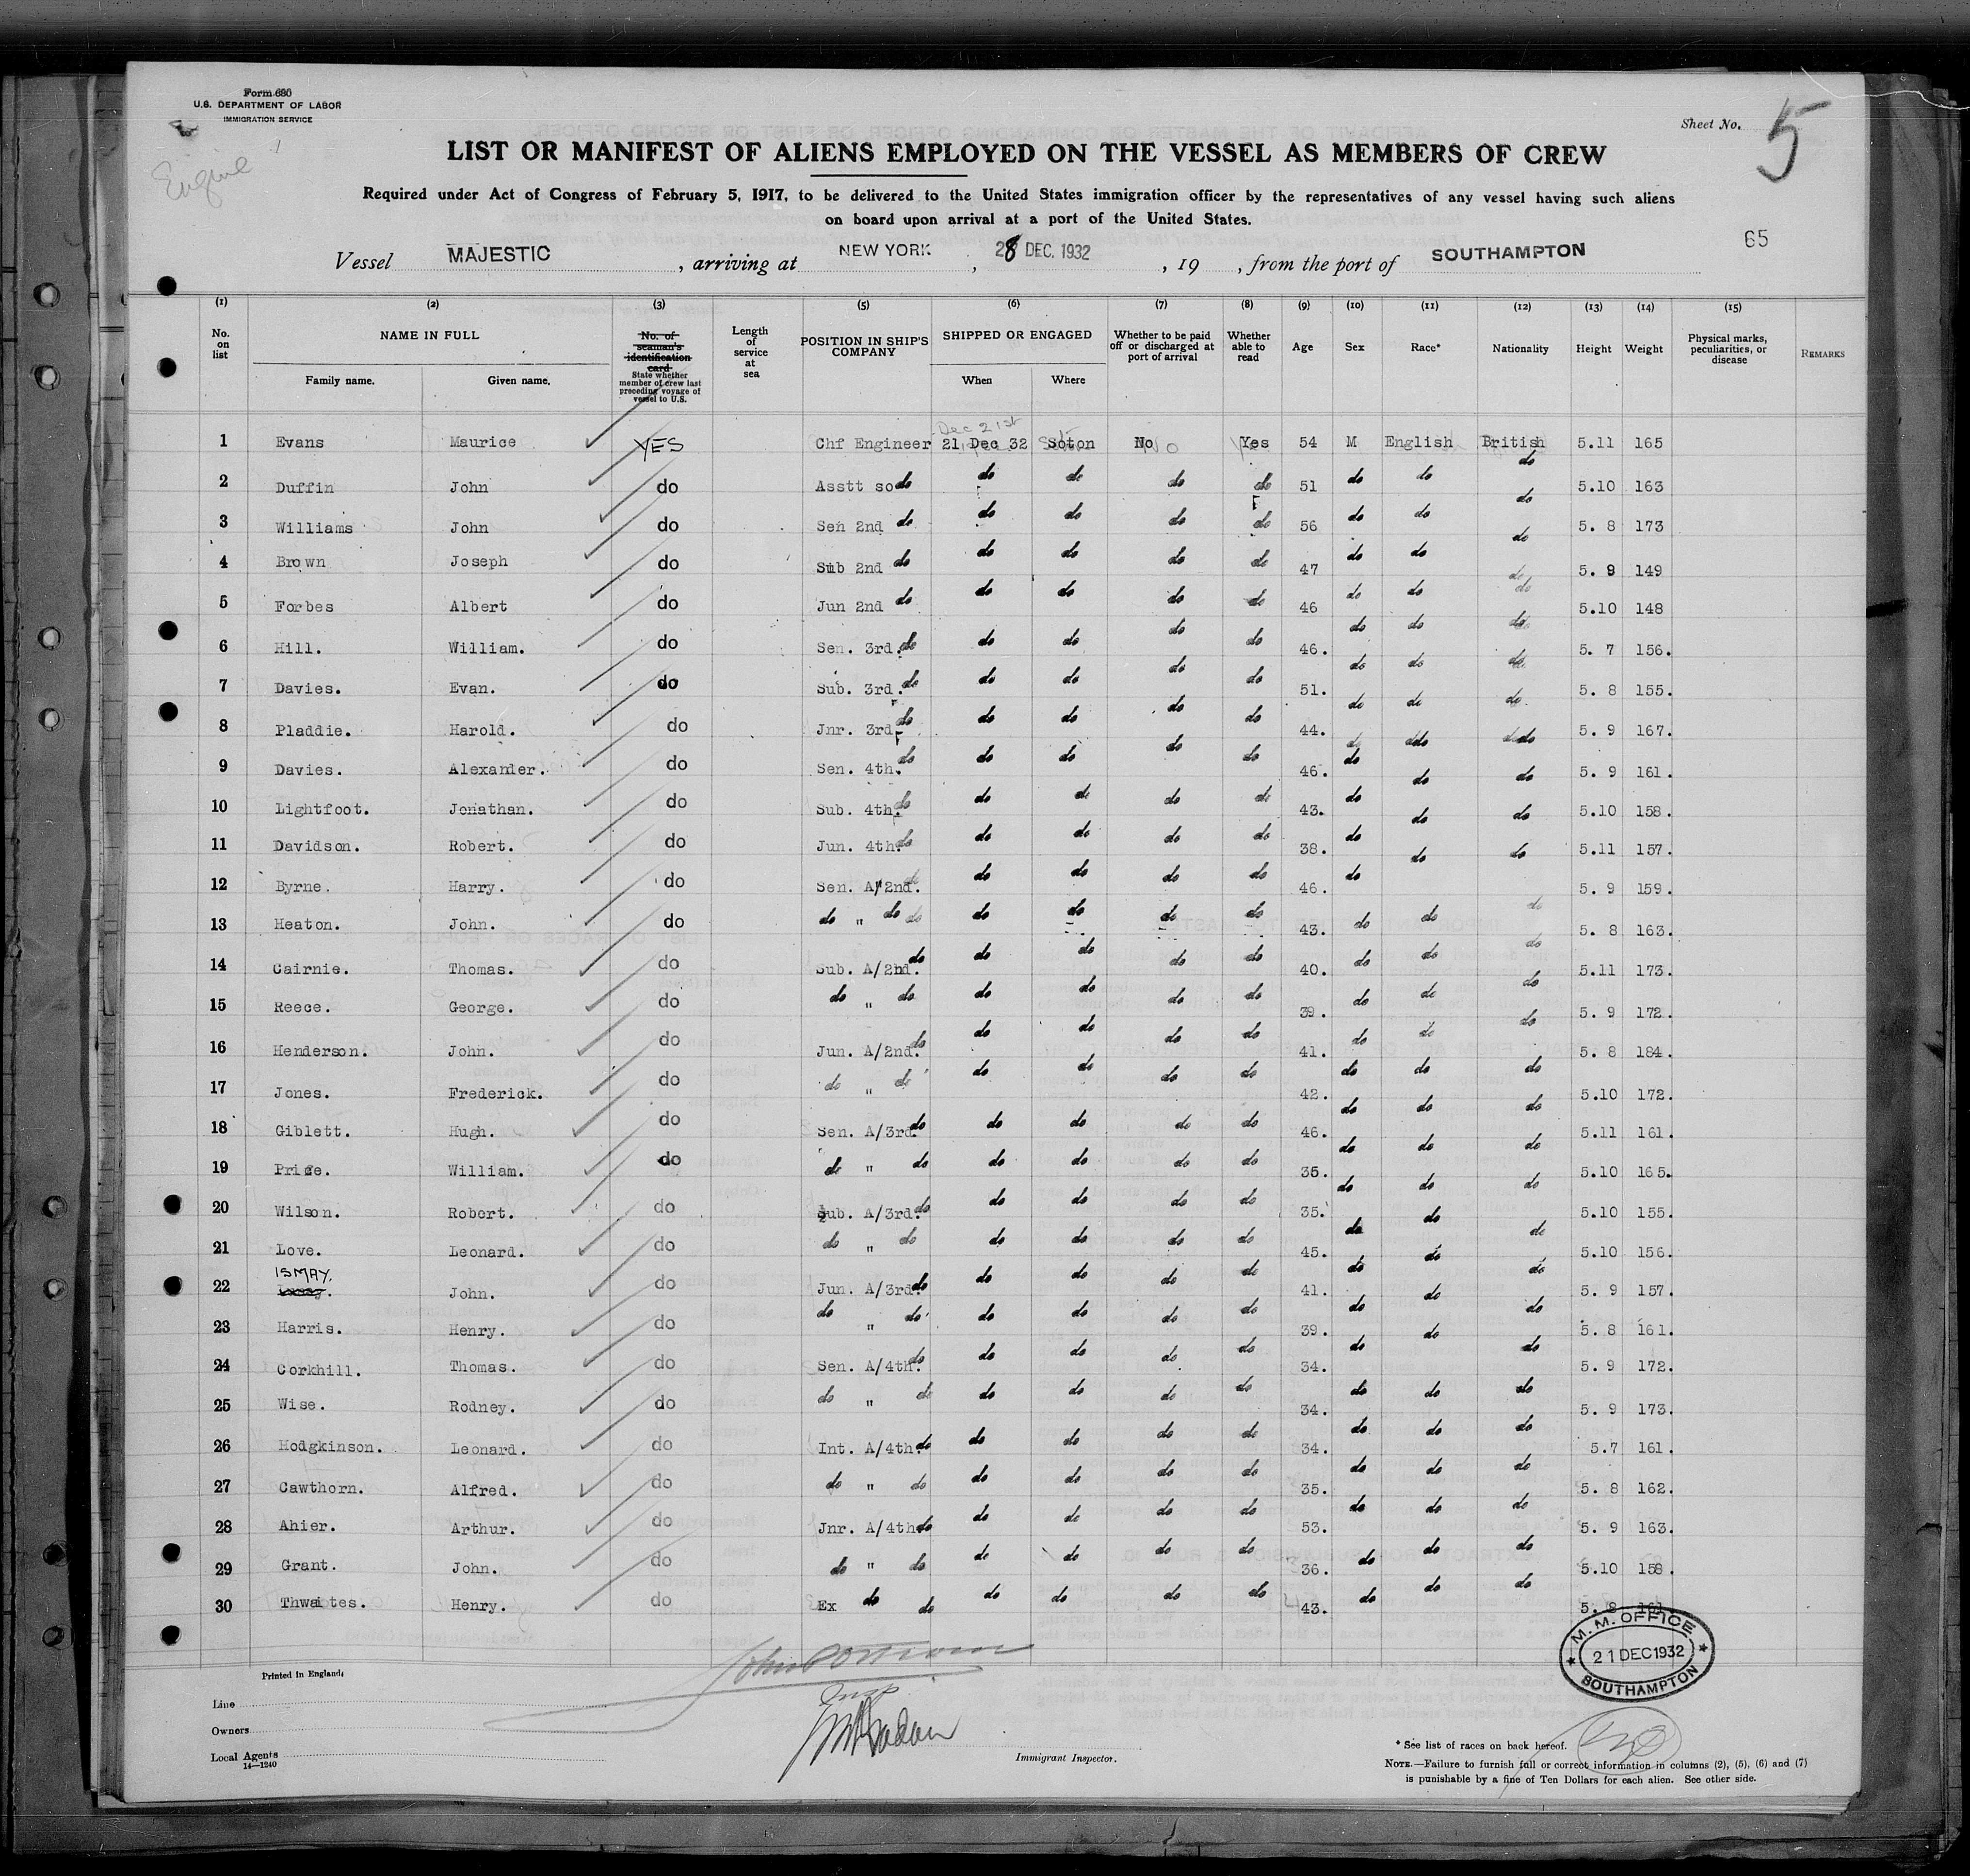 Form 680
U.S. DEPARTMENT OF LABOR
IMMIGRATION SERVICE
Engine
Sheet No. 5
LIST OR MANIFEST OF ALIENS EMPLOYED ON THE VESSEL AS MEMBERS OF CREW
Required under Act of Congress of February 5, 1917, to be delivered to the United States immigration officer by the representatives of any vessel having such aliens
on board upon arrival at a port of the United States.
65
Vessel MAJESTIC , arriving at NEW YORK , 28 DEC. 1932 , 19 , from the port of SOUTHAMPTON
(1) (2) (3) (5) (6) (7) (8) (9) (10) (11) (12) (13) (14) (15)
No. on list NAME IN FULL Family name. Given name. No. of seaman's identification card State whether member of crew last preceding voyage of vessel to U.S. Length of service at sea POSITION IN SHIP'S COMPANY SHIPPED OR ENGAGED When Where Whether to be paid off or discharged at port of arrival Whether able to read Age Sex Race* Nationality Height Weight Physical marks, peculiarities, or disease REMARKS
Dec 21st
1 Evans Maurice YES Chf Engineer 21 Dec 32 Soton No Yes 54 M English British 5.11 165
2 Duffin John do Asstt so do do do do do 51 do do do 5.10 163
3 Williams John do Sen 2nd do do do do do 56 do do do 5. 8 173
4 Brown Joseph do Sub 2nd do do do do do 47 do do do 5. 9 149
5 Forbes Albert do Jun 2nd do do do do do 46 do do do 5.10 148
6 Hill. William. do Sen. 3rd. do do do do do 46. do do do 5. 7 156.
7 Davies. Evan. do Sub. 3rd. do do do do do 51. do do do 5. 8 155.
8 Pladdie. Harold. do Jnr. 3rd do do do do do 44. do do do 5. 9 167.
9 Davies. Alexander. do Sen. 4th. do do do do do 46. do do do 5. 9 161.
10 Lightfoot. Jonathan. do Sub. 4th. do do do do do 43. do do do 5.10 158.
11 Davidson. Robert. do Jun. 4th. do do do do do 38. do do do 5.11 157.
12 Byrne. Harry. do Sen. A/2nd. do do do do do 46. do 5. 9 159.
13 Heaton. John. do do " do do do do do do 43. do do do 5. 8 163.
14 Cairnie. Thomas. do Sub. A/2nd. do do do do do 40. do do do 5.11 173.
15 Reece. George. do do " do do do do do 39. do do do 5. 9 172.
16 Henderson. John. do Jun. A/2nd. do do do do do 41. do do do 5. 8 184.
17 Jones. Frederick. do do " do do do do do 42. do do do 5.10 172.
18 Giblett. Hugh. do Sen. A/3rd. do do do do do 46. do do do 5.11 161.
19 Price. William. do do " do do do do do 35. do do do 5.10 165.
20 Wilson. Robert. do Sub. A/3rd. do do do do do 35. do do do 5.10 155.
21 Love. Leonard. do do " do do do do do 45. do do do 5.10 156.
22 ISMAY. John. do Jun. A/3rd. do do do do do 41. do do do 5. 9 157.
23 Harris. Henry. do do " do do do do do 39. do do do 5. 8 161.
24 Corkhill. Thomas. do Sen. A/4th. do do do do do 34. do do do 5. 9 172.
25 Wise. Rodney. do do " do do do do do 34. do do do 5. 9 173.
26 Hodgkinson. Leonard. do Int. A/4th. do do do do do 34. do do do 5.7 161.
27 Cawthorn. Alfred. do do " do do do do do 35. do do do 5. 8 162.
28 Ahier. Arthur. do Jnr. A/4th do do do do do 53. do do do 5. 9 163.
29 Grant. John. do do " do do do do do 36. do do do 5.10 158.
30 Thwaites. Henry. do Ex do do do do do do 43. do do do 5. 8 161.
M. M. OFFICE
21 DEC 1932
SOUTHAMPTON
Printed in England.
Line
Insp
Owners
Local Agents
14—1240
Immigrant Inspector.
* See list of races on back hereof.
NOTE.—Failure to furnish full or correct information in columns (2), (5), (6) and (7)
is punishable by a fine of Ten Dollars for each alien. See other side.